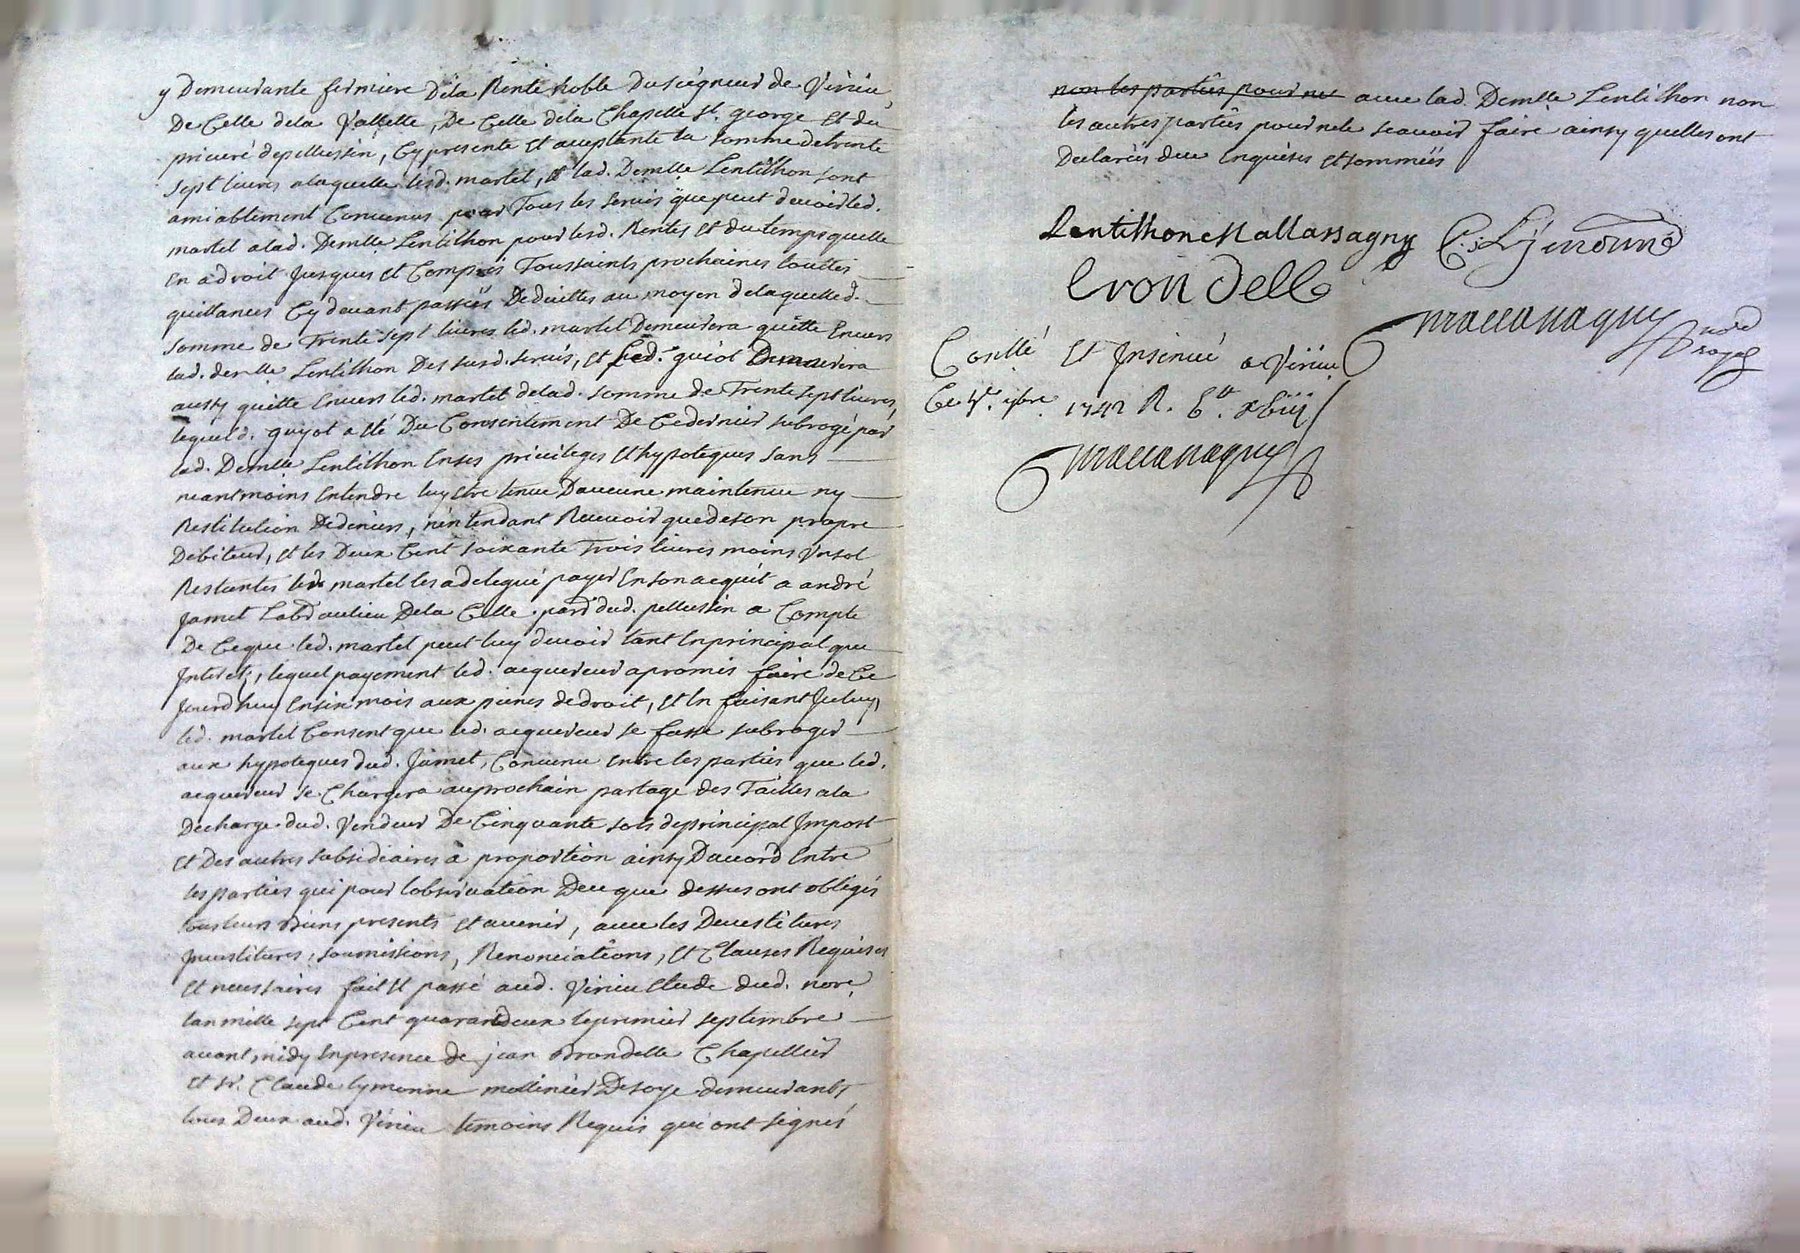 y Demeurante fermiere Dela Rente noble Du seigneur de Virieu,
De Celle dela Valette, De Celle dela Chapelle St. george Et du
prieuré depellussin, Cy presente Et aceptante la somme detrente
sept livres alaquelle lesd. martel, Et lad. Demlle Lentilhon sont
amiablement Convenus pour Tous les servis que peut devoir led.
martel alad. Demlle Lentilhon pour lesd. Rentes Et du temps quelle
En adroit Jusques Et Compris Toussaints prochaines toutes
quittances Cy devant passées Deduittes au moyen delaquelle d.
somme de Trente sept livres led. martel Demeurera quitte Envers
lad. demlle Lentilhon Des susd. servis, Et led. guiot Demeurera
aussy quitte Envers led. martel delad. somme de Trente sept livres,
lequel d. guyot a Eté Du Consentement De Cedernier subrogé par
lad. Demlle Lentilhon Enses privileges Et hypoteques sans
neantmoins Entendre luy Etre tenue Daucune maintenue ny
Restitution Dedeniers, n'entendant Recevoir quedeson propre
Debiteur, Et les Deux Cent soixante Trois livres moins Un sol
Restantes led. martel les adelegué payer Enson acquit a andré
Jamet Labr aulieu Dela Celle parr. dud. pellussin a Compte
De Ceque led. martel peut luy devoir tant Enprincipal que
Interets, lequel payement led. acquereur apromis faire de Ce
Jourdhuy Ensix mois aux peines dedroit, Et En faisant Jceluy
led. martel Consent que led. acquereur se fasse subroger
aux hypoteques dud. Jamet, Convenu Entre les parties que led.
acquereur se Chargera auprochain partage des Tailles ala
Decharge dud. Vendeur De Cinquante sols deprincipal Jmpost
Et Des autres subsidiaires a proportion ainsy Daccord Entre
les parties qui pour lobservation Deceque dessus ont obligés
tous leurs Biens presents Et avenir, avec les Devestitures
Jnvestitures, soumissions, Renonciations, Et Clauses Requises
Et necessaires fait Et passé aud. Virieu Etude dud. nore
lan mille sept Cent quarandeux lepremier septembre
avant midy Enpresence de jean Brondelle Chapellier
Et sr. Claude Lymonne mollinier Desoye demeurants
tous Deux aud. Virieu temoins Requis qui ont signés
non les parties pour ne avec lad. Demlle Lentilhon non
les autres parties pour nele scavoir faire ainsy quelles ont
Declarées due Enquises Et sommées
Lentilhon C. Lymonne
Brondelle
nore
royal
Conllé Et Jnsinué a Virieu
Ce 4e. 7bre 1742 R.